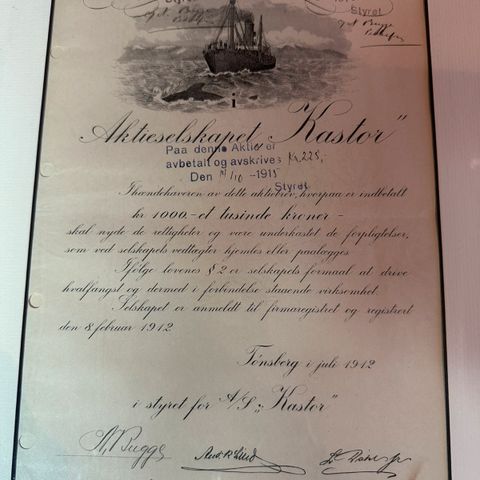 Styret
i
Aktieselskapet „Kastor"
Paa denne Aktie er
avbetalt og avskrives Kr 225,-
Den 11/10 -1915
Styret
Ihændehaveren av dette aktiebrev, hvorpaa er indbetalt
kr 1000 - et tusinde kroner -
skal nyde de rettigheter og være underkastet de forpligtelser,
som ved selskapets vedtægter hjemles eller paalægges.
Ifølge lovenes § 2 er selskapets formaal at drive
hvalfangst og dermed i forbindelse staaende virksomhet.
Selskapet er anmeldt til firmaregistret og registrert
den 8 februar 1912.
Tønsberg i juli 1912
i styret for A/S „Kastor"
A, Bugge